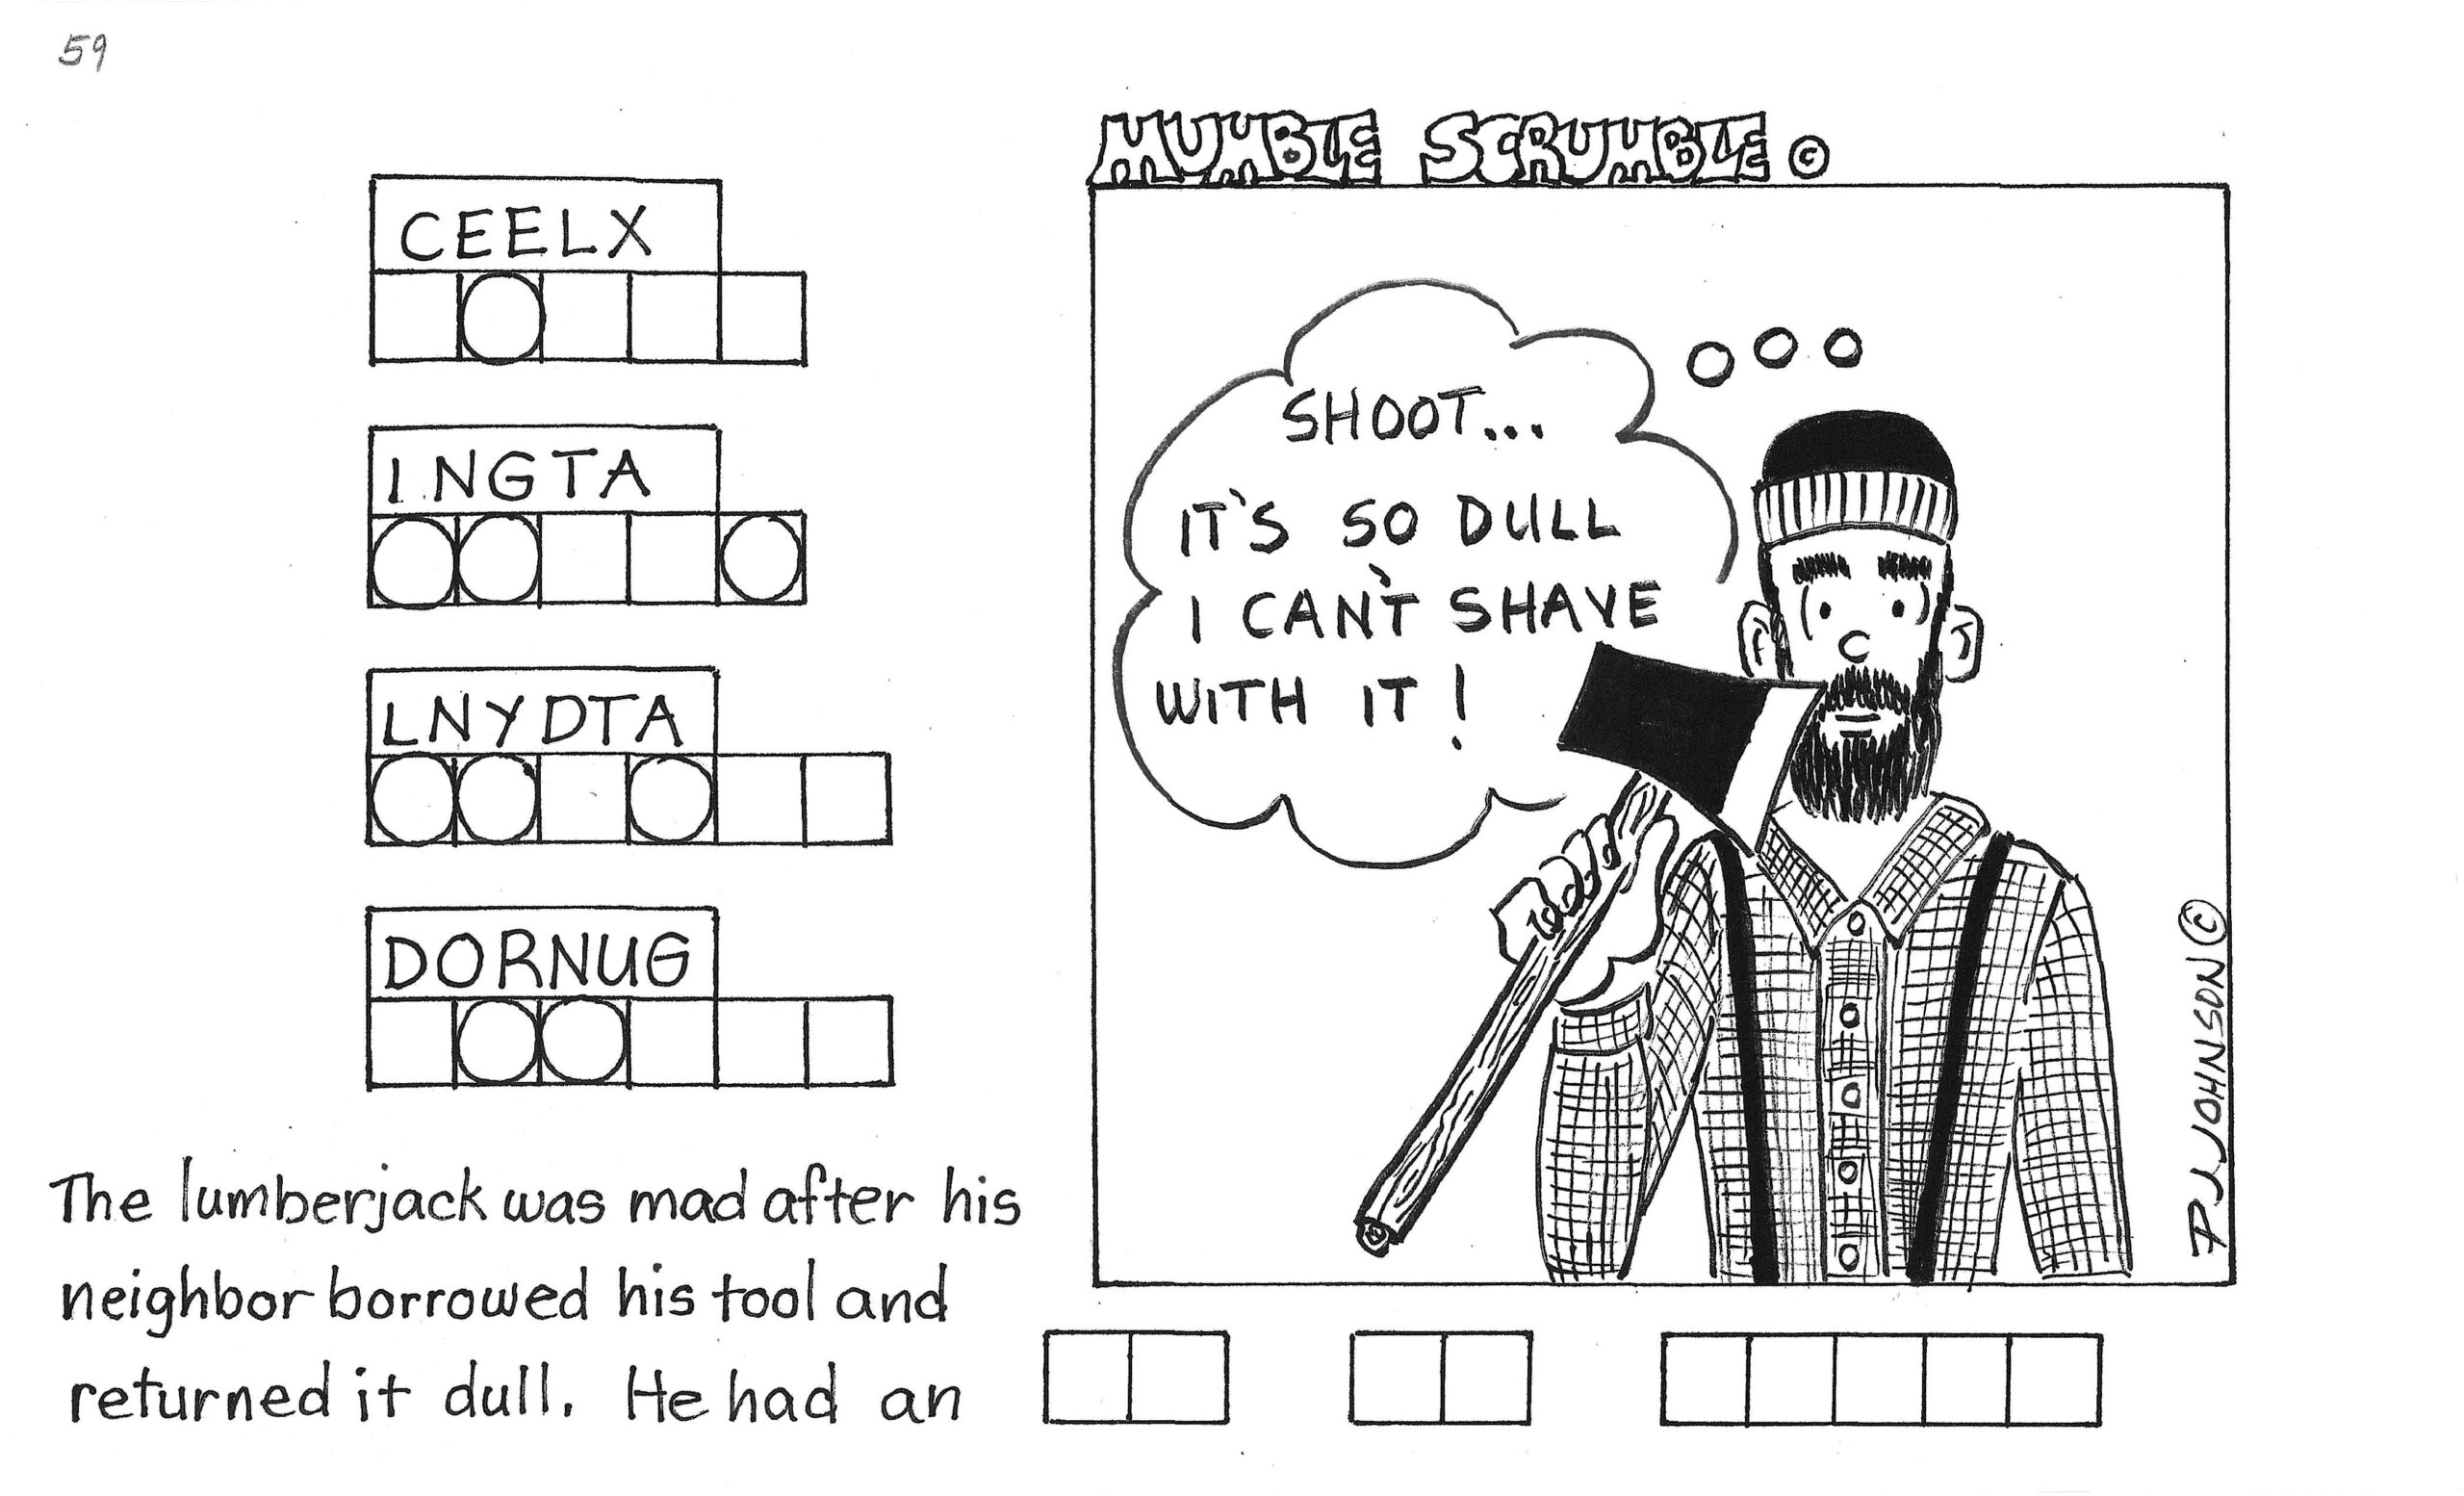 59
MUMBLE SCRUMBLE ©
CEELX
INGTA
LNYDTA
DORNUG
SHOOT...
IT'S SO DULL
I CAN'T SHAVE
WITH IT!
PJJOHNSON ©
The lumberjack was mad after his
neighbor borrowed his tool and
returned it dull. He had an